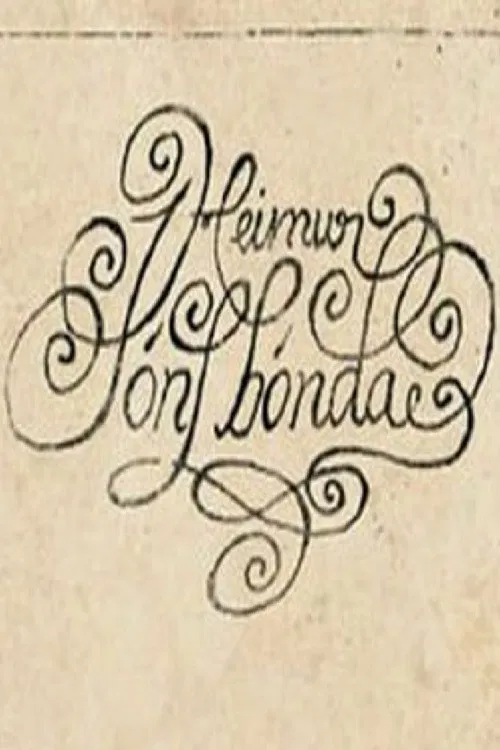 Heimur
Jóns bónda